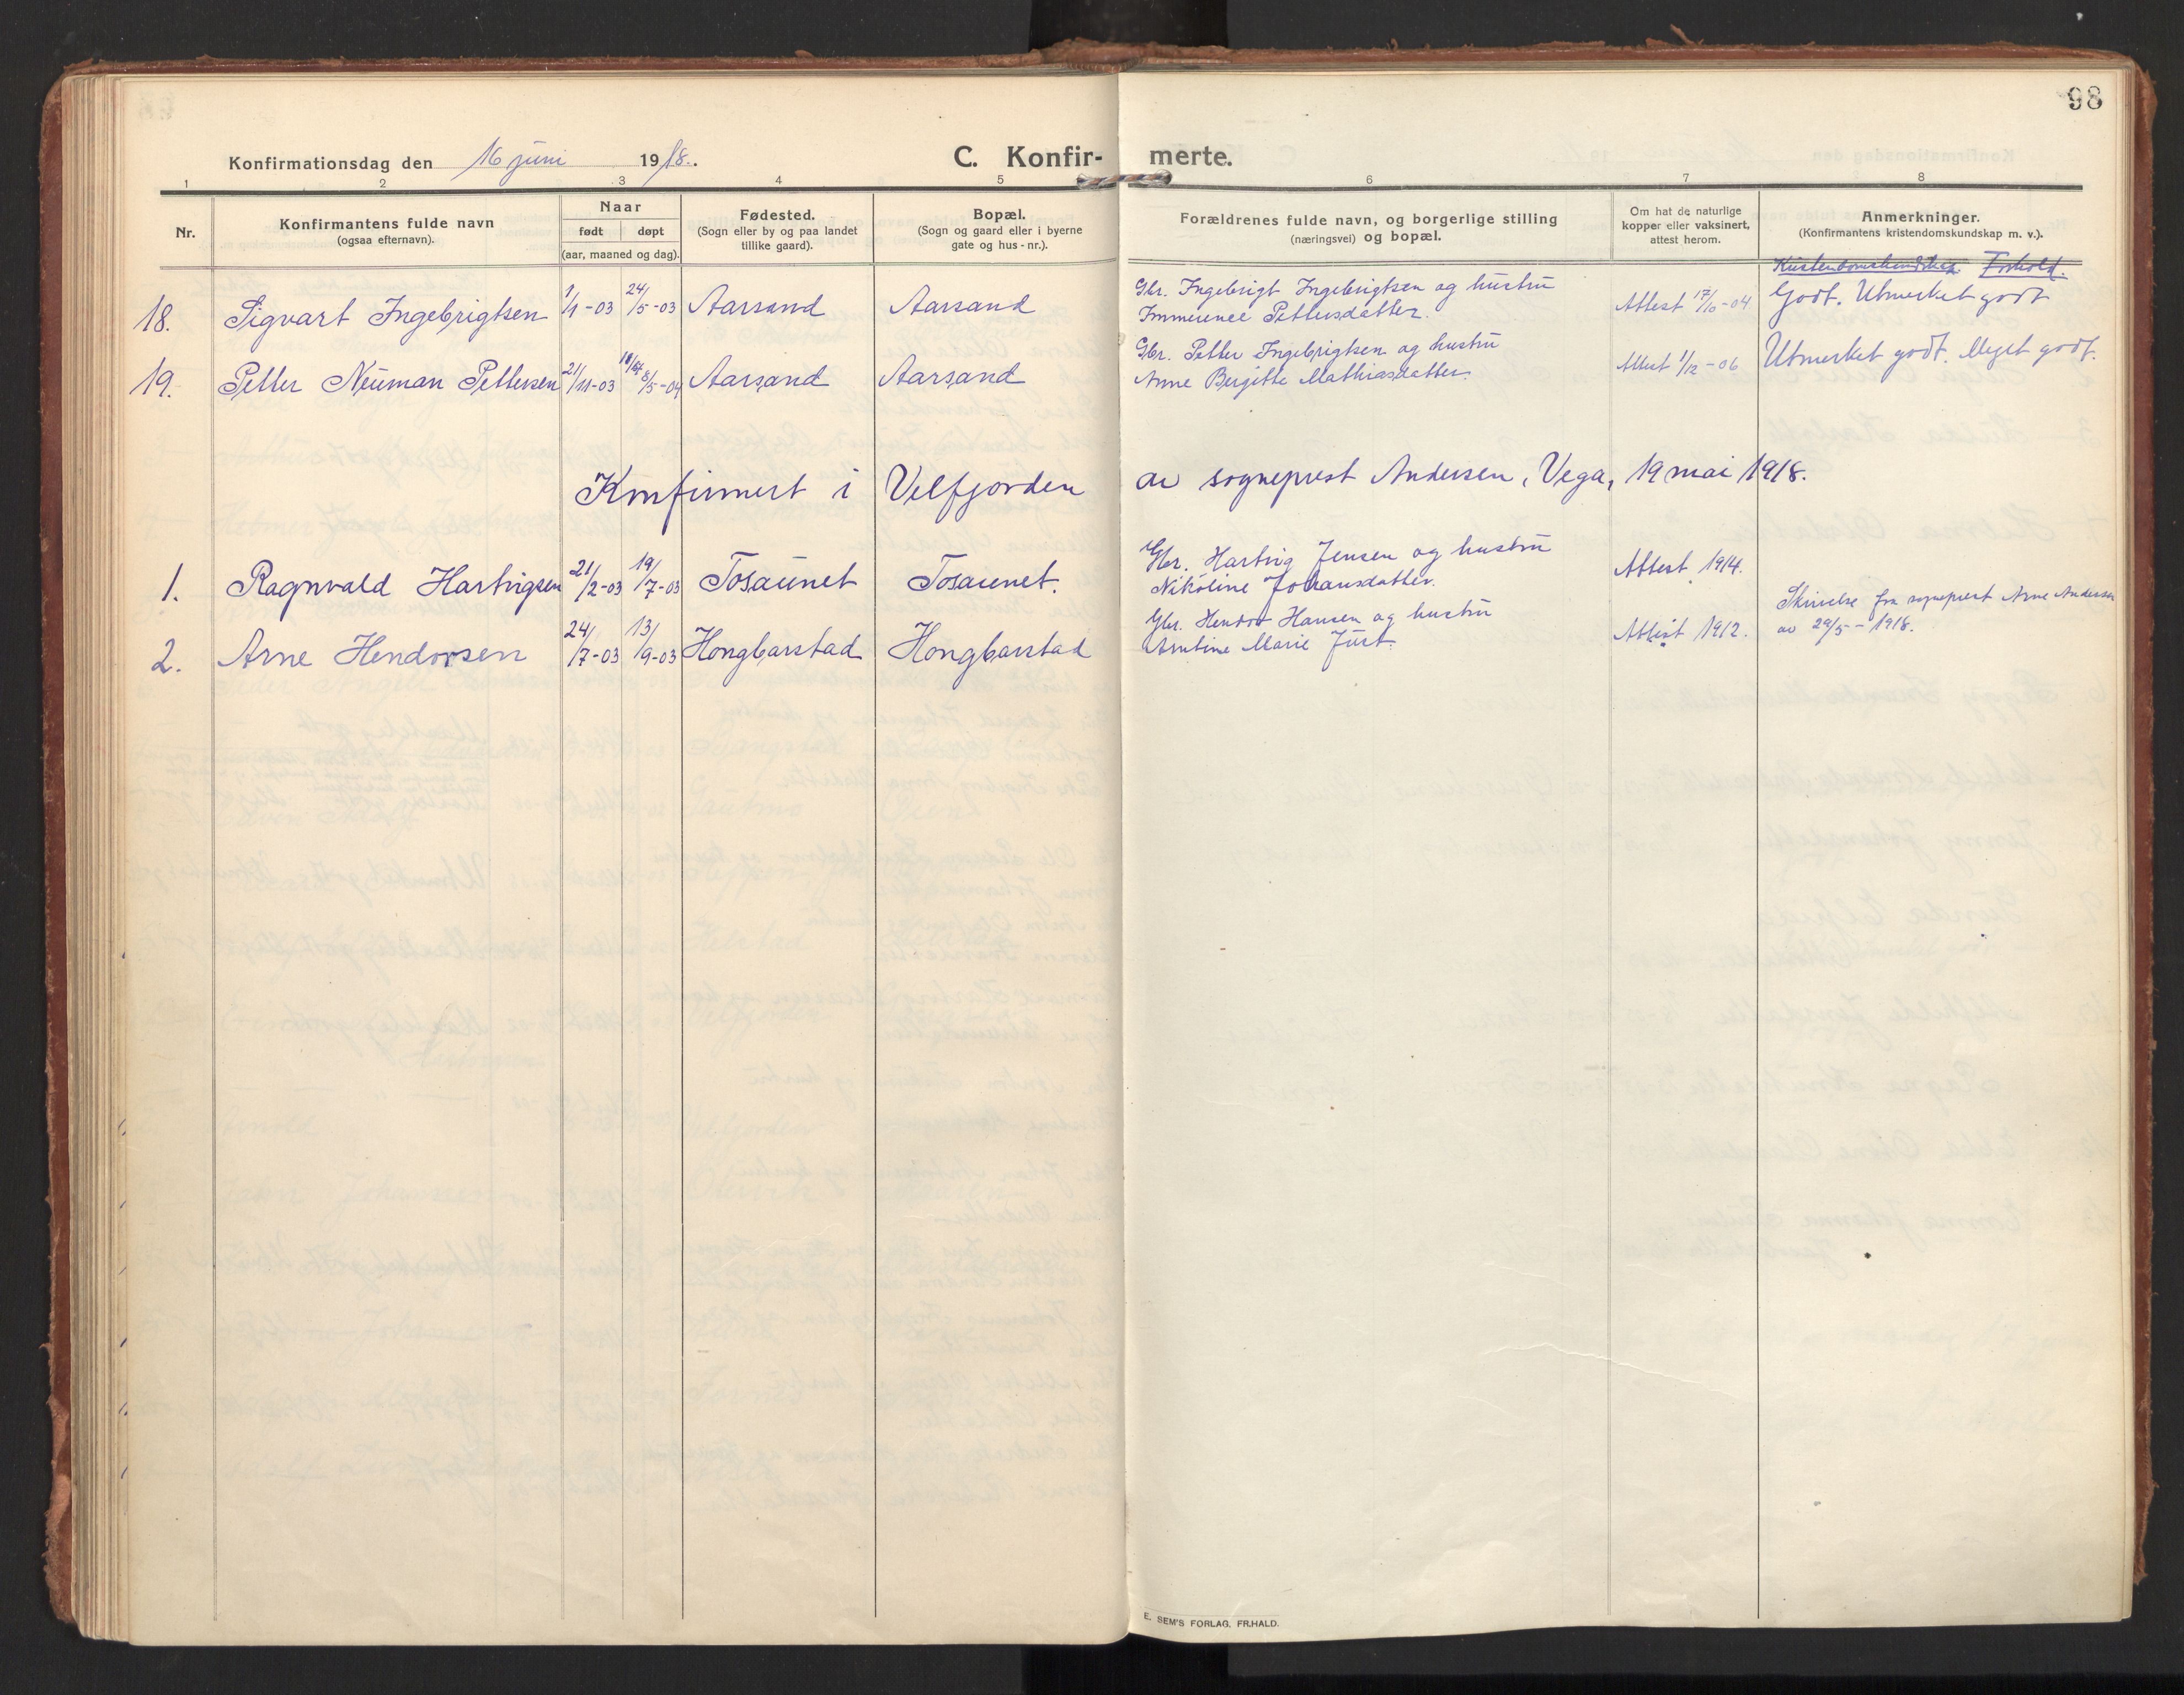 98
Konfirmationsdag den 16 juni 1918.
C. Konfir- merte.
1 2 3 4 5 6 7 8
Nr.
Konfirmantens fulde navn
(ogsaa efternavn).
Naar
født døpt
(aar, maaned og dag).
Fødested.
(Sogn eller by og paa landet
tillike gaard).
Bopæl.
(Sogn og gaard eller i byerne
gate og hus - nr.).
Forældrenes fulde navn, og borgerlige stilling
(næringsvei) og bopæl.
Om hat de naturlige
kopper eller vaksinert,
attest herom.
Anmerkninger.
(Konfirmantens kristendomskundskap m. v.).
Kristendomskundskap. Forhold.
18. Sigvart Ingebrigtsen 1/1-03 24/5-03 Aarsand Aarsand
Gbr. Ingebrigt Ingebrigtsen og hustru
Immerence Pettersdatter.
Attest 17/10-04
Godt. Utmerket godt
19. Petter Neuman Pettersen 21/11-03 8/5-04 Aarsand Aarsand
Gbr. Petter Ingebrigtsen og hustru
Anne Bergitte Mathiasdatter.
Attest 1/12-06
Utmerket godt. Meget godt.
Konfirmert i Velfjorden av sogneprest Andersen, Vega, 19 mai 1918.
1. Ragnvald Hartvigsen 21/2-03 19/7-03 Tosaunet Tosaunet.
Gbr. Hartvig Jensen og hustru
Nikoline Johansdatter.
Attest 1914.
2. Arne Hendorsen 24/7-03 13/9-03 Hongbarstad Hongbarstad
Gbr. Hendor Hansen og hustru
Arntine Marie Just.
Attest 1912.
Skrivelse fra sogneprest Arne Andersen
av 29/5-1918.
E. SEM'S FORLAG. FR.HALD.